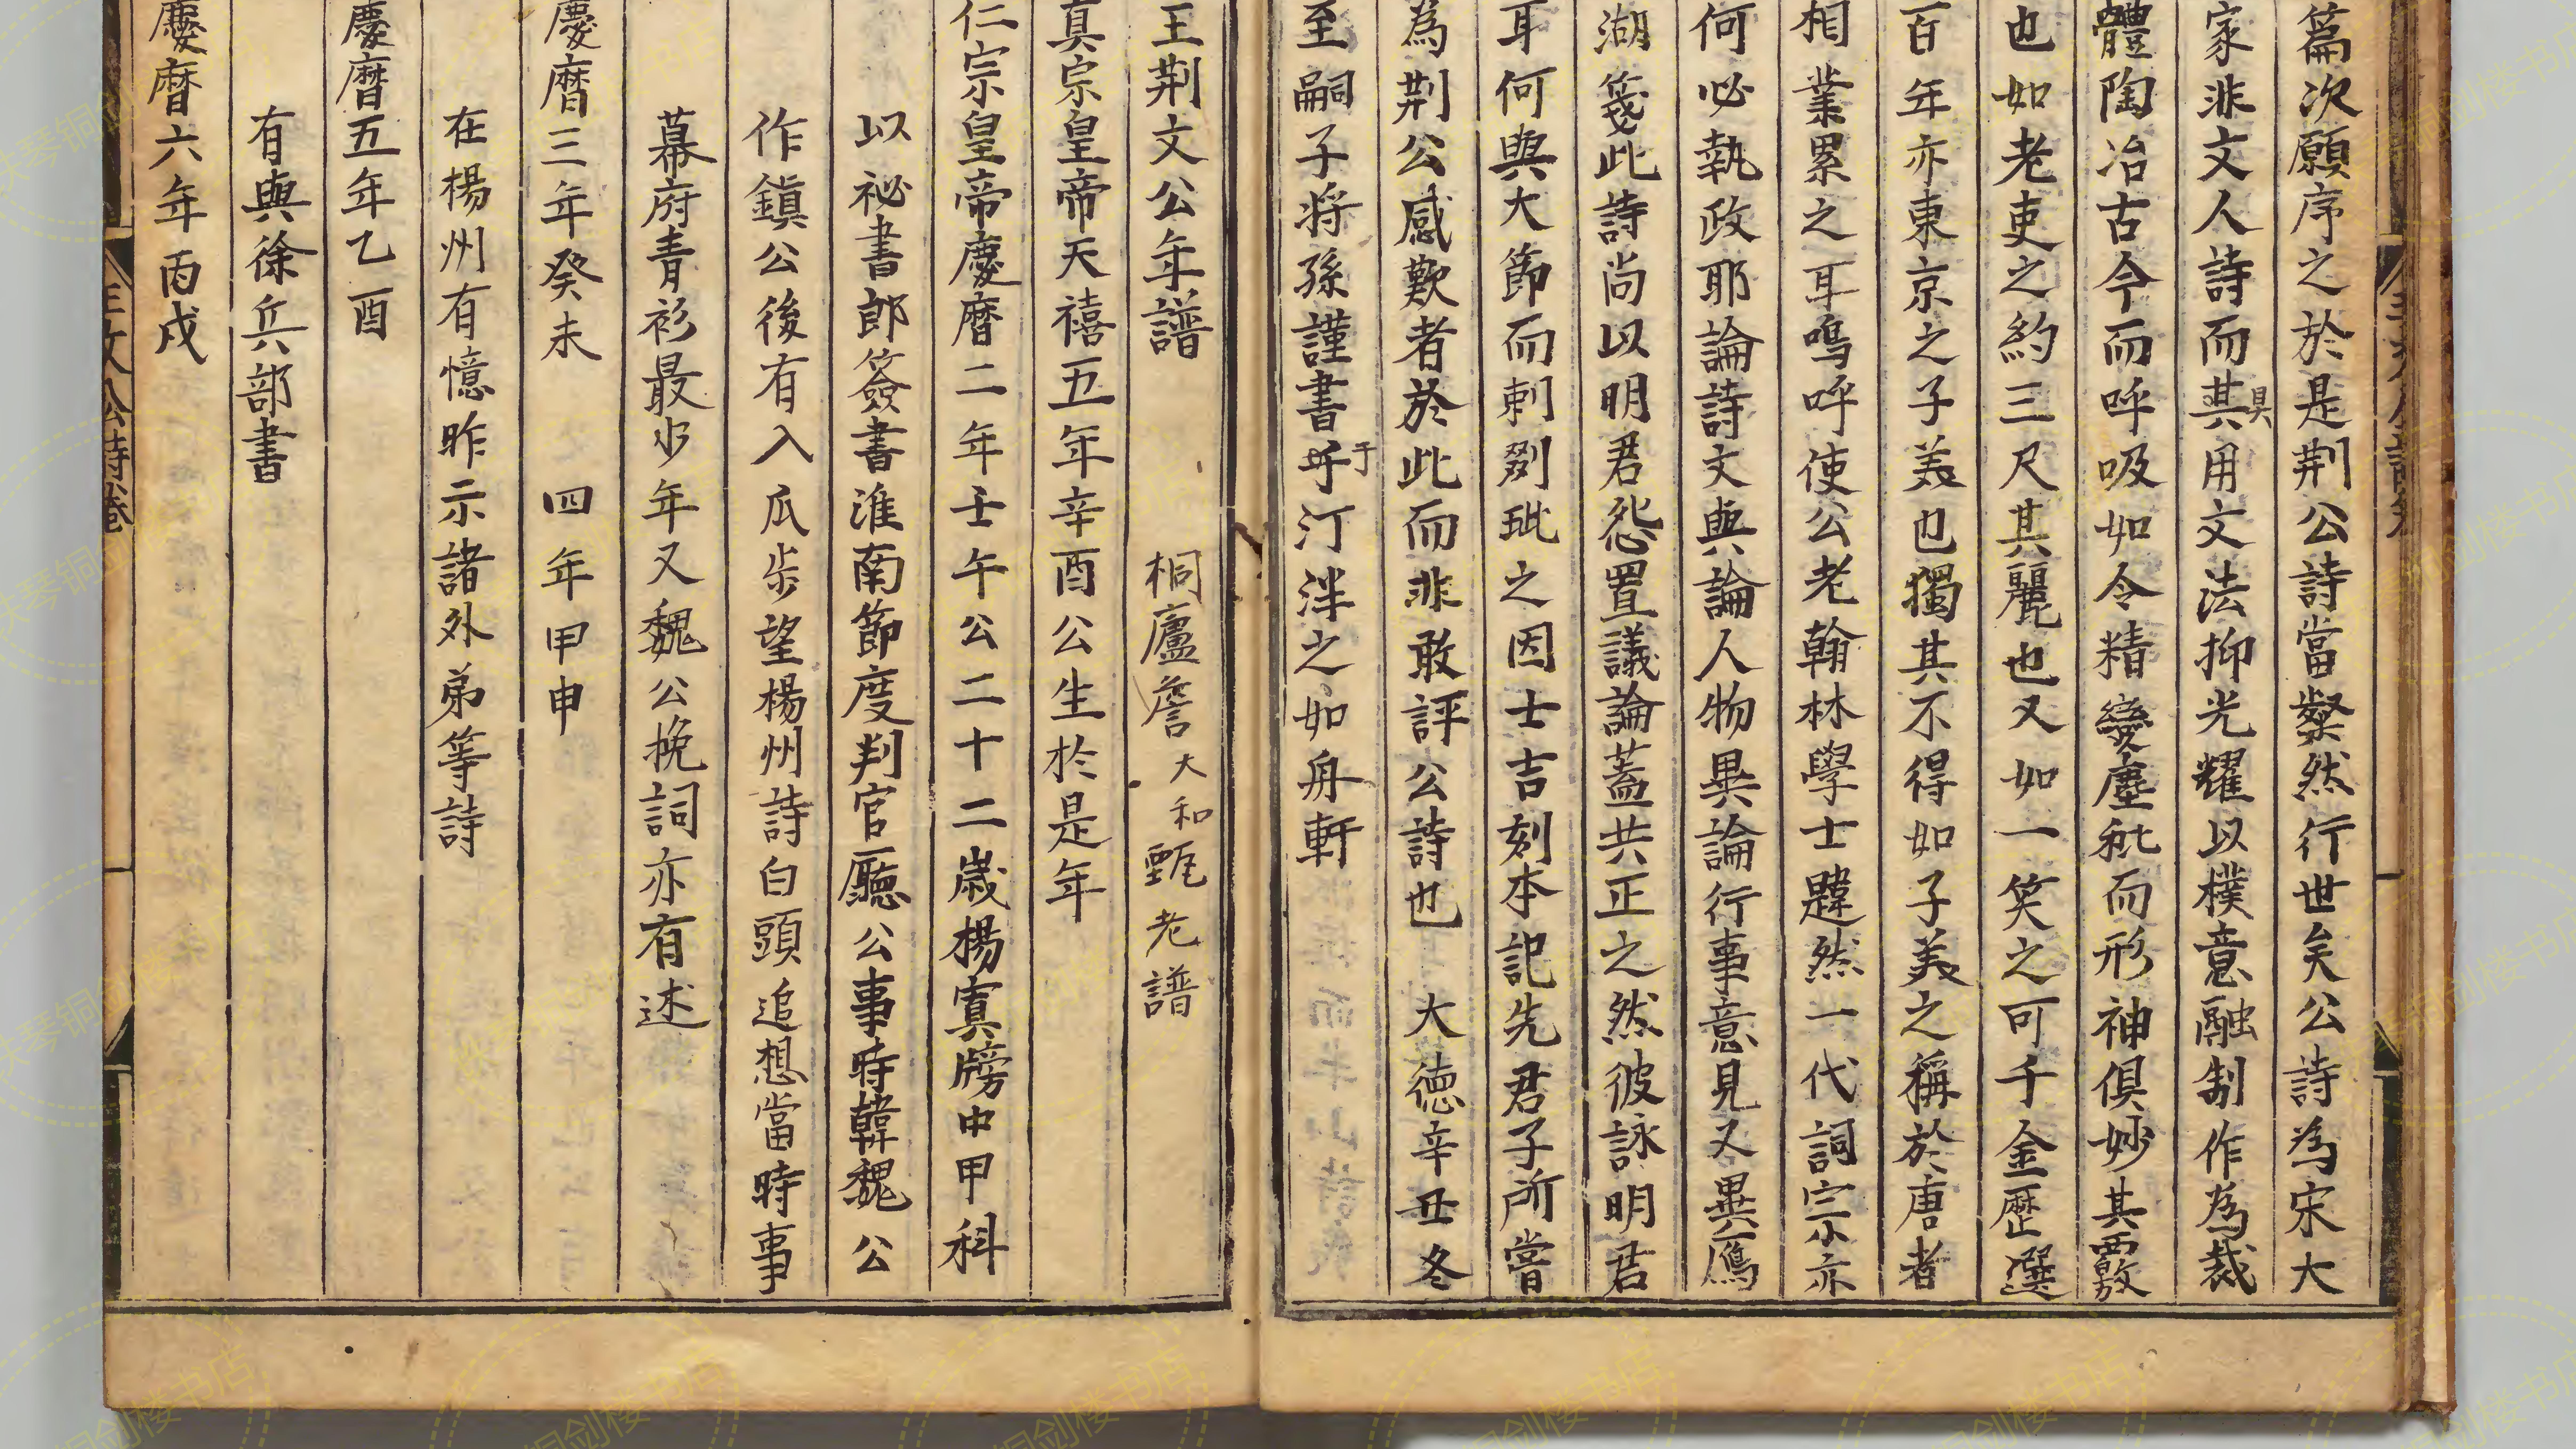 篇次願序之於是荆公詩當粲然行世矣公詩為宋大
家非文人詩而其具用文法抑光耀以樸意融制作為裁
體陶冶古今而呼吸如令精變塵秕而形神俱妙其覈
也如老吏之約三尺其麗也又如一笑之可千金歷選
百年亦東京之子美也獨其不得如子美之稱於唐者
相業累之耳嗚呼使公老翰林學士韙然一代詞宗亦
何必執政耶論詩文與論人物異論行事意見又異鴈
湖箋此詩尚以明君怨置議論蓋共正之然彼詠明君
耳何與大節而刺剟玼之因士吉刻本記先君子所嘗
為荆公感歎者於此而非敢評公詩也 大德辛丑冬
至嗣子將孫謹書乎于汀泮之如舟軒
王荆文公年譜 桐廬詹大和甄老譜
真宗皇帝天禧五年辛酉公生於是年
仁宗皇帝慶曆二年壬午公二十二歲楊寘牓中甲科
以祕書郎簽書淮南節度判官廳公事時韓魏公
作鎮公後有入瓜步望楊州詩白頭追想當時事
幕府青衫最少年又魏公挽詞亦有述
慶曆三年癸未 四年甲申
在楊州有憶昨示諸外弟等詩
慶曆五年乙酉
有與徐兵部書
慶曆六年丙戌
王文公詩卷